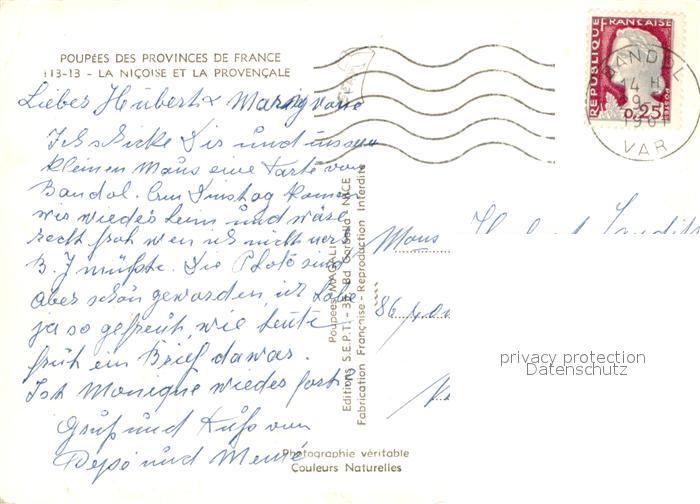 POUPÉES DES PROVINCES DE FRANCE
113-13 - LA NIÇOISE ET LA PROVENÇALE
Lieber Hubert &
Ich schicke Dir und unser
kleinen Maus eine Karte von
Bandol. Am Dinstag kommen
wir wieder heim und wäre
recht froh wen ich nicht vors
B. J müsste. Die Photo sind
aber schön geworden, ich habe
ja so gefreut, wie heute
früh ein Brief da war.
Ist Monique wieder fort
Gruß und Kuß von
und Memé
Poupées MAGALI
Editions S.E.P.T. - Bd Gorbella NICE
Fabrication Française - Reproduction Interdite
Photographie véritable
Couleurs Naturelles
REPUBLIQUE FRANÇAISE
POSTES
0,25
BANDOL
14 H
9
1961
VAR
Mons
86
privacy protection
Datenschutz